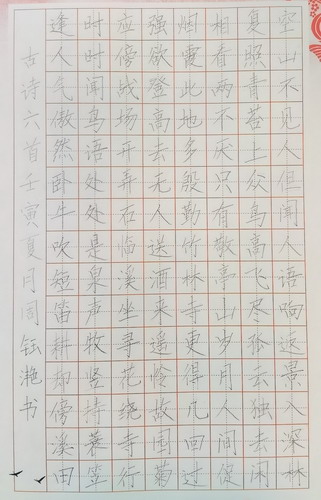 空山不见人但闻人语响返景入深林
复照青苔上众鸟高飞尽孤云独去闲
相看两不厌只有敬亭山岁月人间促
烟霞此地多殷勤竹林寺更得几回过
强欲登高去无人送酒来遥怜故园菊
应傍战场开弄石临溪坐寻花绕寺行
时时闻鸟语处处是泉声牧竖持蓑笠
逢人气傲然卧牛吹短笛耕却傍溪田
古诗六首壬寅夏月周钰滟书